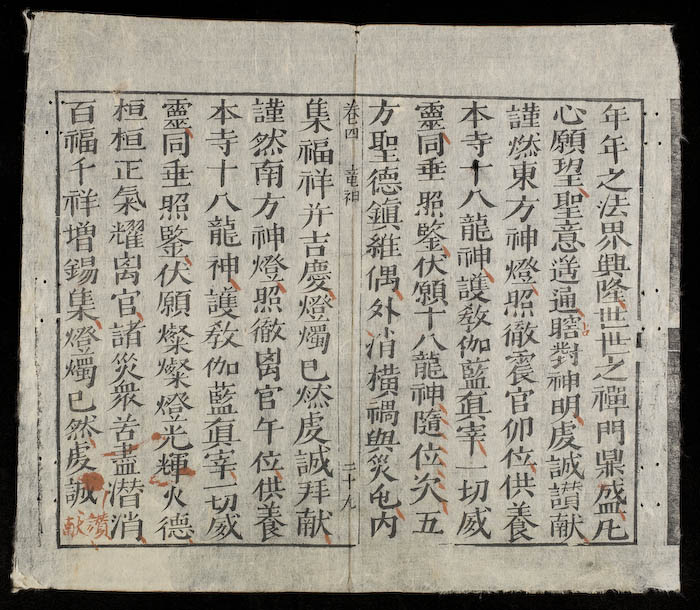 年年之法界興隆世世之禪門鼎盛凡
心願望聖意遥通瞎對神明虔誠讃献
占
謹燃東方神燈照徹震官卯位供養
本寺十八龍神護敎伽藍眞宰一切威
靈同垂照鑒伏願十八龍神隨位次五
方聖德鎮維偶外消橫禍與災屯内
卷四 竜神 二十九
集福祥并吉慶燈燭已燃虔誠拜献
謹然南方神燈照徹离官午位供養
本寺十八龍神護敎伽藍眞宰一切威
靈同垂照鑒伏願燦燦燈光輝火德
桓桓正氣耀离官諸災衆苦盡潜消
百福千祥增錫集燈燭已然虔誠
讃献